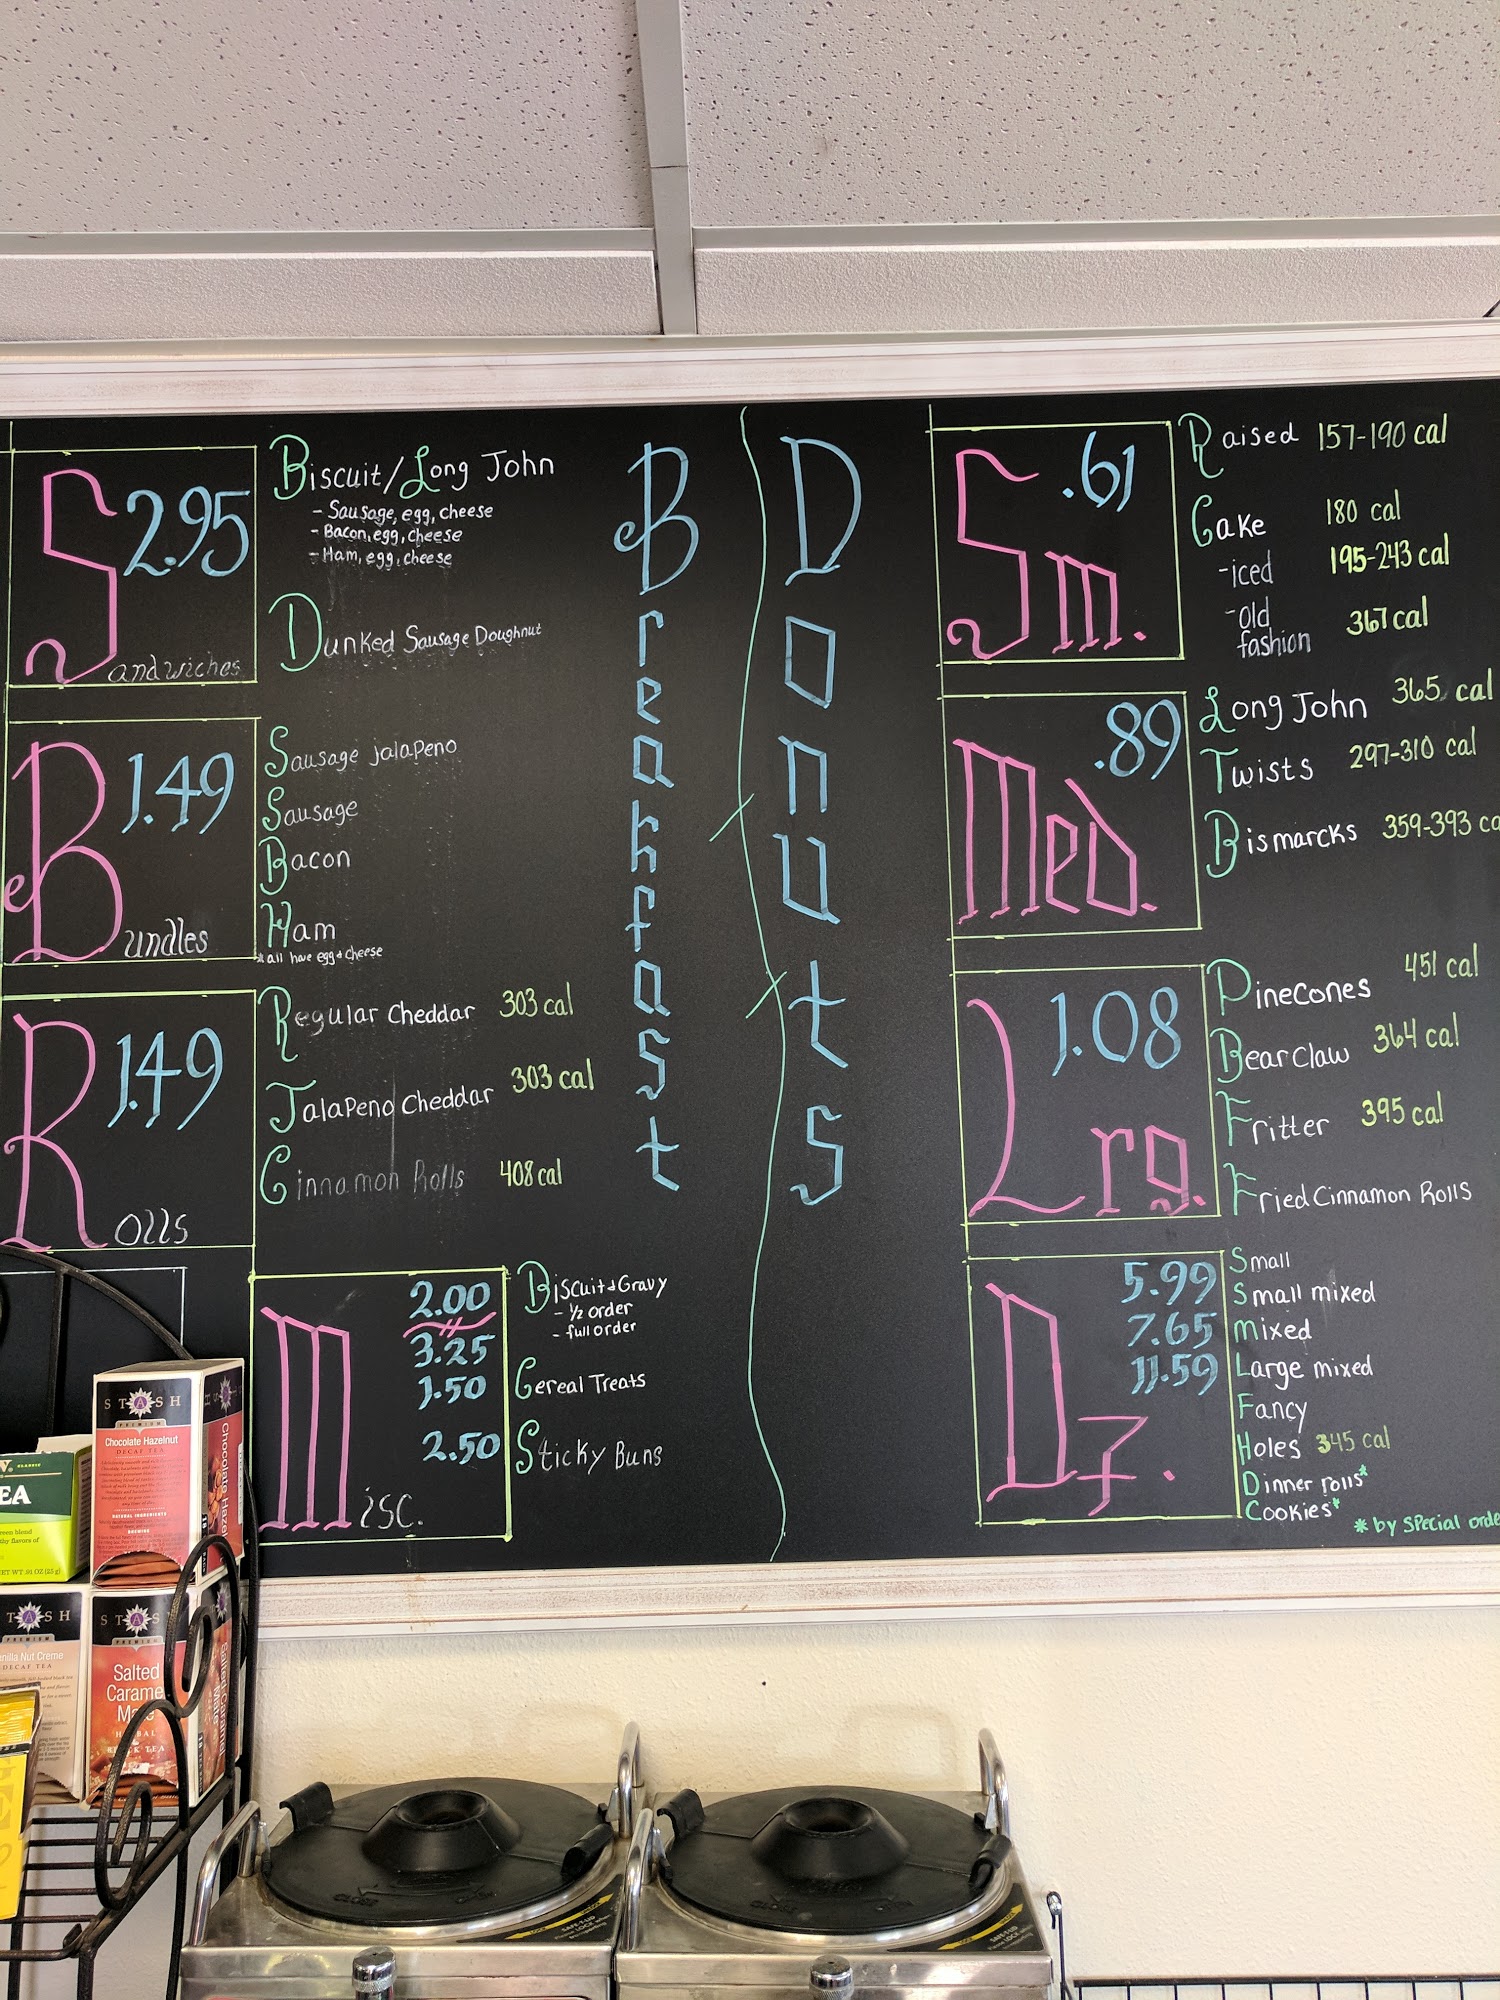 Sandwiches 2.95
Biscuit/Long John
- Sausage, egg, cheese
- Bacon, egg, cheese
- Ham, egg, cheese
Dunked Sausage Doughnut
Bundles 1.49
Sausage jalapeno
Sausage
Bacon
Ham
* all have egg & cheese
Rolls 1.49
Regular Cheddar 303 cal
Jalapeno Cheddar 303 cal
Cinnamon Rolls 408 cal
Misc.
2.00
3.25
1.50
2.50
Biscuit & Gravy
- 1/2 order
- full order
Cereal Treats
Sticky Buns
Breakfast
Donuts
Sm. .61
Raised 157-190 cal
Cake 180 cal
-iced 195-243 cal
-old
fashion 367 cal
Med. .89
Long John 365 cal
Twists 297-310 cal
Bismarcks 359-393 ca
Lrg. 1.08
Pinecones 451 cal
Bear Claw 364 cal
Fritter 395 cal
Fried Cinnamon Rolls
Dz.
5.99
7.65
11.59
Small
Small mixed
Mixed
Large mixed
Fancy
Holes 345 cal
Dinner rolls*
Cookies*
* by special orde
STASH
PREMIUM
Chocolate Hazelnut
DECAF TEA
Chocolate Haze
CLASSIC
EA
reen blend
thy flavors of
NET WT .91 OZ (25 g)
TASH
PREMIUM
nilla Nut Creme
DECAF TEA
STAS
PREMIUM
Salted
Carame
Mate
HERBAL
BLACK TEA
Salted Caramel
Mate